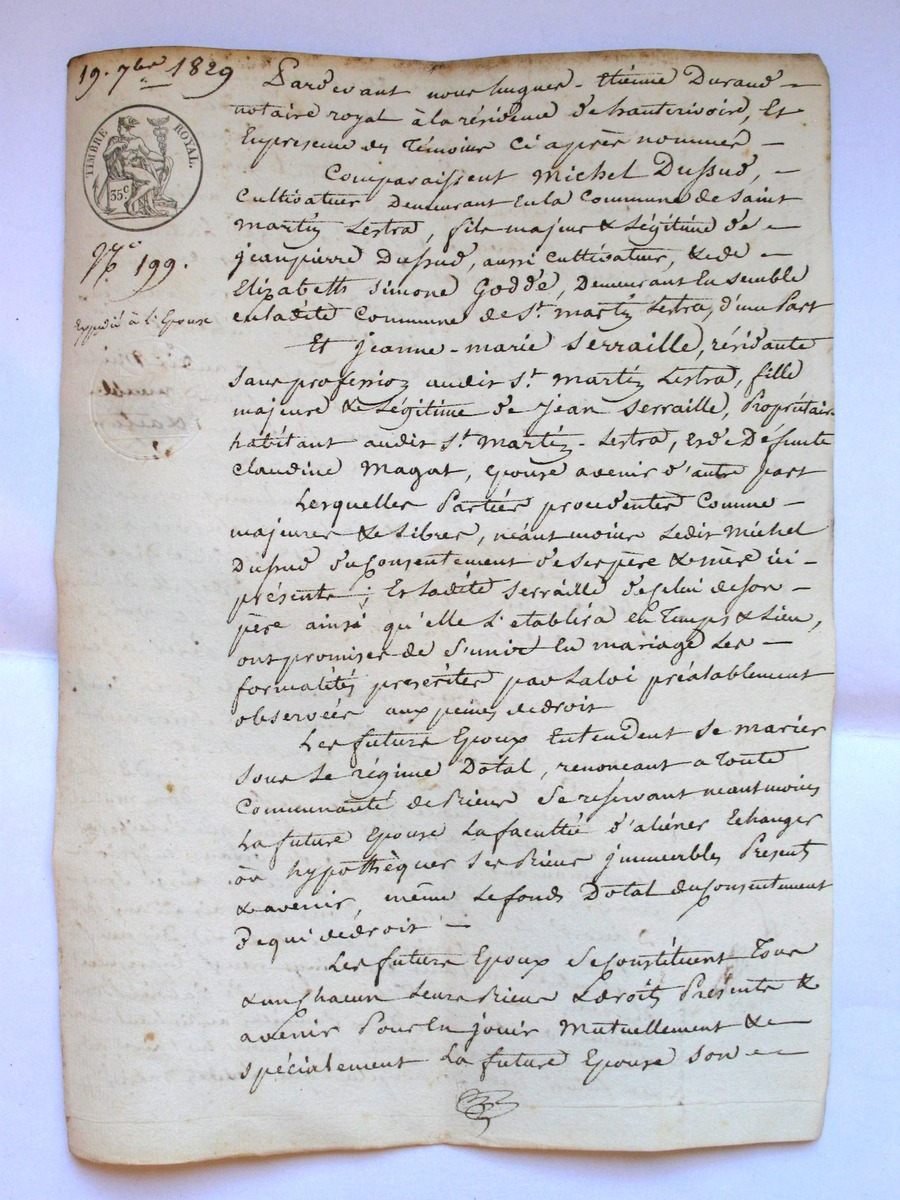 19. 7bre 1829
TIMBRE ROYAL.
35 c
N° 199.
Expédié à l'Epouse
Pardevant nous hugues-Etienne Durand
notaire royal à la résidence de hauterivoire, Et
En presence des Témoins Ci après nommés
Comparaissent Michel Dussud,
Cultivateur Demeurant En la Commune de Saint
martin Lestra, fils majeur & Légitime de
jeanpierre Dussud, aussi Cultivateur, & de
Elizabeth Simone Goddé, Demeurant Ensemble
en ladite Commune de St. martin Lestra, d'une Part
Et jeanne-marie Serraille, résidante
sans profession audit St. martin Lestra, fille
majeure & Légitime de Jean Serraille, Propriétaire
habitant audit St. martin-Lestra, et de Défunte
Claudine Magat, Epouse avenir d'autre part
Lesquelles Parties procedentes Comme
majeures & Libres, néantmoins Ledit Michel
Dussud du Consentement de ses père & mère ici
présents; Et Ladite Serraille de celui de son
père ainsi qu'elle l'etablira En Temps & Lieu,
ont promis de s'unir En mariage Les
formalités préscrites par La loi préalablement
observées aux peines de droit
Les futurs Epoux Entendent se marier
sous Le régime Dotal, renonçant a Toute
Communauté de Biens se reservant néantmoins
La future Epouse La faculté d'aliéner Echanger
ou hypothèquer ses Biens immeubles Présents
& avenir, même Le fonds Dotal du Consentement
de qui de droit
Les futurs Epoux se Constituent Tous
& un chacun Leurs Biens & droits Présents &
avenir Pour En jouir Mutuellement &
spécialement La future Epouse son